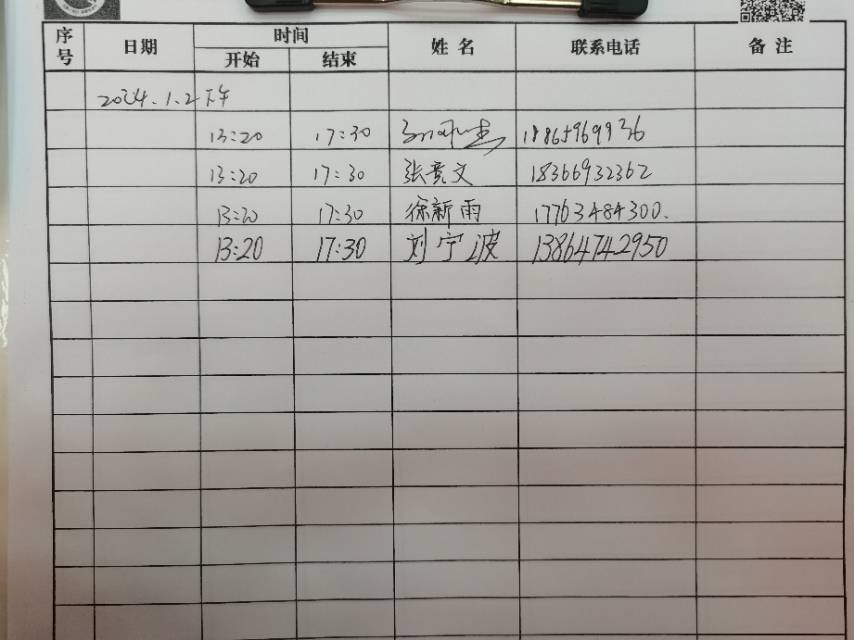 序号 日期 时间 姓名 联系电话 备注
开始 结束
2024.1.2下午
13:20 17:30 18659169936
13:20 17:30 张竞文 18366932362
13:20 17:30 徐新雨 17763484300.
13:20 17:30 刘宁波 13864742950